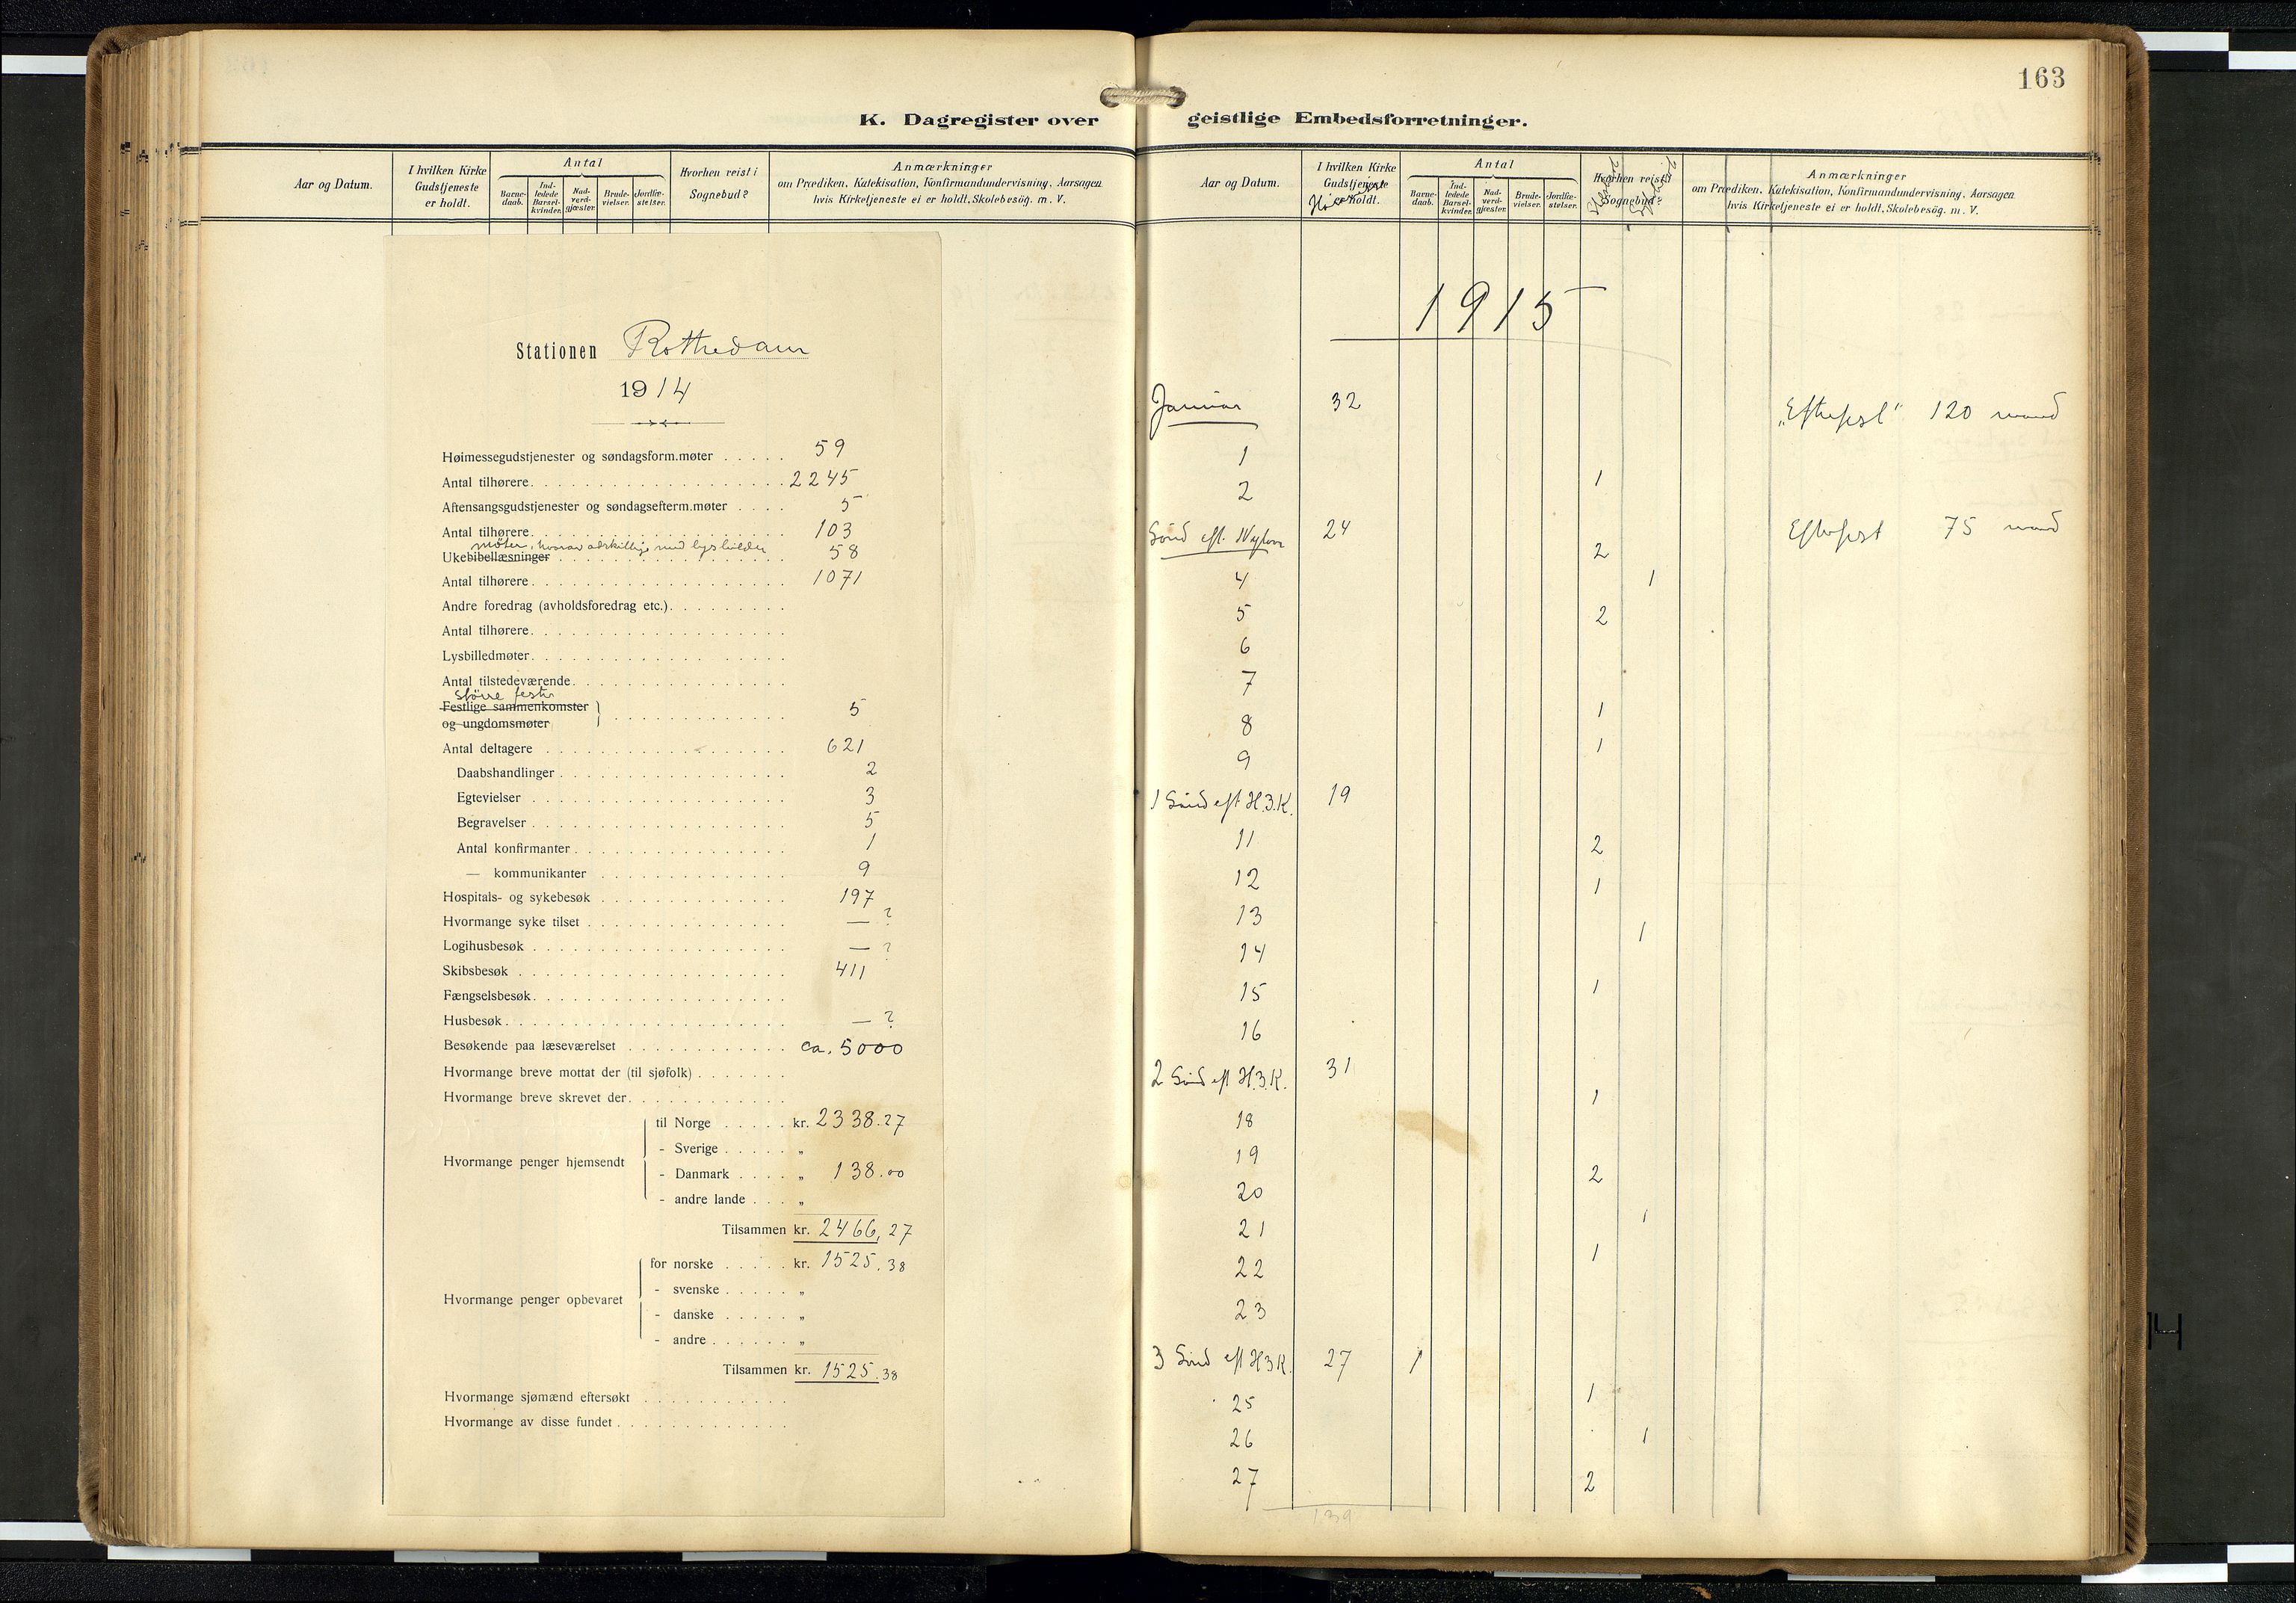 163
K. Dagregister over geistlige Embedsforretninger.
Aar og Datum.
I hvilken Kirke Gudstjeneste er holdt.
Antal
Barne-daab.
Ind-ledede Barsel-kvinder.
Nad-verd-gjæster.
Brude-vielser.
Jordfæ-stelser.
Hvorhen reist i Sognebud?
Anmærkninger
om Prædiken, Katekisation, Konfirmandundervisning, Aarsagen
hvis Kirketjeneste ei er holdt, Skolebesög. m. V.
Stationen Rotterdam
1914
Høimessegudstjenester og søndagsform.møter 59
Antal tilhørere 2245
Aftensangsgudstjenester og søndagsefterm.møter 5
Antal tilhørere 103
møter, hvorav adskillige med lysbilleder
Ukebibellæsninger 58
Antal tilhørere 1071
Andre foredrag (avholdsforedrag etc.)
Antal tilhørere
Lysbilledmøter
Antal tilstedeværende
större fester
Festlige sammenkomster
og ungdomsmøter 5
Antal deltagere 621
Daabshandlinger 2
Egtevielser 3
Begravelser 5
Antal konfirmanter 1
— kommunikanter 9
Hospitals- og sykebesøk 197
Hvormange syke tilset — ?
Logihusbesøk — ?
Skibsbesøk 411
Fængselsbesøk
Husbesøk — ?
Besøkende paa læseværelset ca. 5000
Hvormange breve mottat der (til sjøfolk)
Hvormange breve skrevet der
Hvormange penger hjemsendt
til Norge kr. 2338.27
- Sverige „
- Danmark „ 138.00
- andre lande „
Tilsammen kr. 2466,27
Hvormange penger opbevaret
for norske kr. 1525.38
- svenske „
- danske „
- andre „
Tilsammen kr. 1525.38
Hvormange sjømænd eftersøkt
Hvormange av disse fundet
Aar og Datum.
I hvilken Kirke Gudstjeneste er holdt.
Antal
Barne-daab.
Ind-ledede Barsel-kvinder.
Nad-verd-gjæster.
Brude-vielser.
Jordfæ-stelser.
Hvorhen reist i Sognebud?
Anmærkninger
om Prædiken, Katekisation, Konfirmandundervisning, Aarsagen
hvis Kirketjeneste ei er holdt, Skolebesög. m. V.
1915
Januar 32 „Efterfest" 120 mand
1
2 1
Sönd eft. Nytaar 24 2 Efterfest 75 mand
4 1
5 2
6
7
8 1
9 1
1 Sönd eft H.3.K. 19
11 2
12 1
13 1
14
15 1
16
2 Sönd eft H.3.K. 31
1
18
19 2
20
21 1
22 1
23
3 Sönd eft H3K. 27 1
25 1
26 1
27 2
139